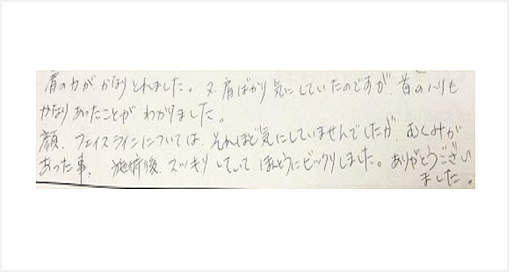 肩の力がかなりとれました。又、肩ばかり気にしていたのですが首のハリも
かなりあったことがわかりました。
顔、フェイスラインについては、それほど気にしていませんでしたが、むくみが
あった事、施術後、スッキリしてして ほんとうにビックリしました。ありがとうござい
ました。